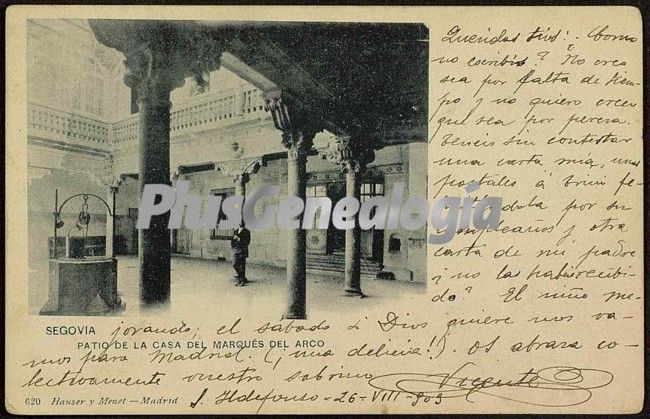 Queridos tíos: Como
no escribís? No creo
sea por falta de tiem-
po y no quiero creer
que sea por pereza.
Teneis sin contestar
una carta mia, unas
postales á Trini fe-
licitandola por su
cumpleaños y otra
carta de mi padre
¿no la habeis recibi-
do? El niño me-
jorando; el sábado si Dios quiere nos va-
mos para Madrid. (¡una delicia!!). Os abraza co-
lectivamente vuestro sobrino Vicente
S. Ildefonso - 26 - VIII - 903
SEGOVIA
PATIO DE LA CASA DEL MARQUÉS DEL ARCO
620 Hauser y Menet.—Madrid
PlusGenealogía